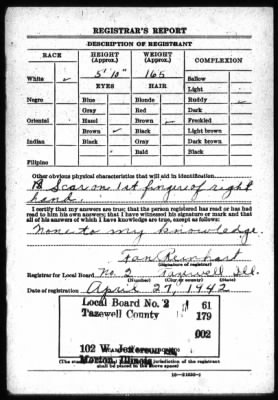 REGISTRAR'S REPORT
DESCRIPTION OF REGISTRANT
RACE
HEIGHT (Approx.)
WEIGHT (Approx.)
COMPLEXION
White ✓
5' 10"
165
Sallow
Light
EYES
HAIR
Ruddy ✓
Negro
Blue
Blonde
Dark
Gray
Red
Freckled
Oriental
Hazel
Brown ✓
Light brown
Brown ✓
Black
Dark brown
Indian
Black
Gray
Black
Bald
Filipino
Other obvious physical characteristics that will aid in identification
Scar on 1st finger of right
hand.
I certify that my answers are true; that the person registered has read or has had
read to him his own answers; that I have witnessed his signature or mark and that
all of his answers of which I have knowledge are true, except as follows:
None to my knowledge.
Reinhart
(Signature of registrar)
Registrar for Local Board No. 2 Tazewell Ill.
(Number) (City or county) (State)
Date of registration April 27, 1942
Local Board No. 2 61
Tazewell County 179
002
102 W. Jefferson
Morton, Illinois
(The stamp of the Local Board having jurisdiction of the registrant
shall be placed in the above space)
16-21630-2